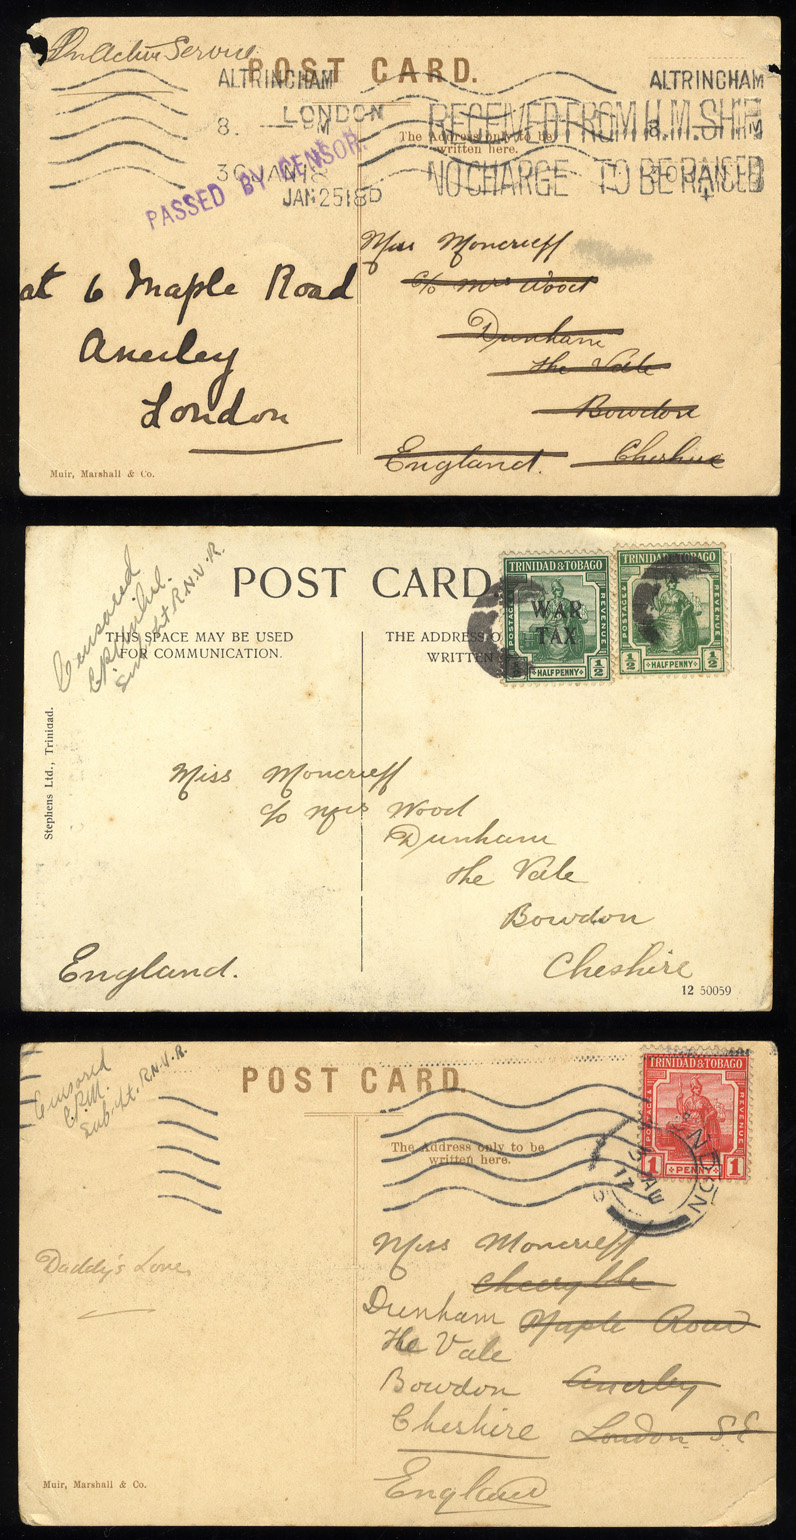 On Active Service
POST CARD.
ALTRINCHAM
8. PM
30 JAN 18
LONDON
PM
JAN 25 18 D
PASSED BY CENSOR.
ALTRINCHAM
8. PM
RECEIVED FROM H.M. SHIP
NO CHARGE TO BE RAISED
The Address only to be
written here.
Miss Moncrieff
c/o Mrs Wood
Dunham
The Vale
Bowdon
Cheshire
England.
at 6 Maple Road
Anerley
London
Muir, Marshall & Co.
Censored
Sub-Lt R.N.V.R.
POST CARD
THIS SPACE MAY BE USED
FOR COMMUNICATION.
THE ADDRESS O
WRITTEN
TRINIDAD & TOBAGO
POSTAGE &
REVENUE
WAR
TAX
1/2
HALFPENNY
1/2
TRINIDAD & TOBAGO
POSTAGE &
REVENUE
1/2
HALFPENNY
1/2
Stephens Ltd., Trinidad.
Miss Moncrieff
c/o Mrs Wood
Dunham
The Vale
Bowdon
Cheshire
England.
12 50059
Censored
C.P.M.
Sub-Lt. R.N.V.R.
POST CARD.
TRINIDAD & TOBAGO
POSTAGE &
REVENUE
1
PENNY
1
The Address only to be
written here.
Daddy's Love,
Miss Moncrieff
Dunham Maple Road
The Vale
Bowdon Anerley
Cheshire London S.E
England
Muir, Marshall & Co.